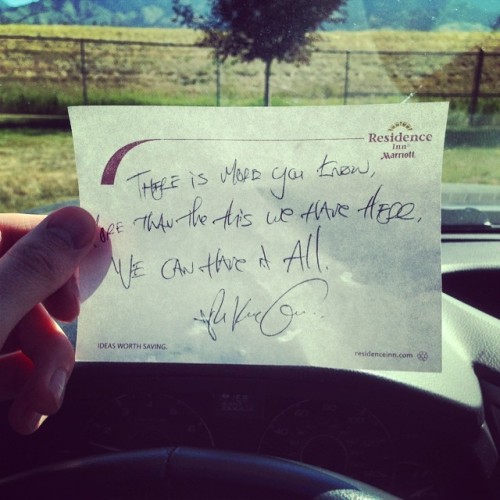 Residence
Inn®
Marriott
THERE is MORE you know,
MORE THAN the this we HAVE HERE,
WE CAN HAVE it All.
IDEAS WORTH SAVING.
residenceinn.com